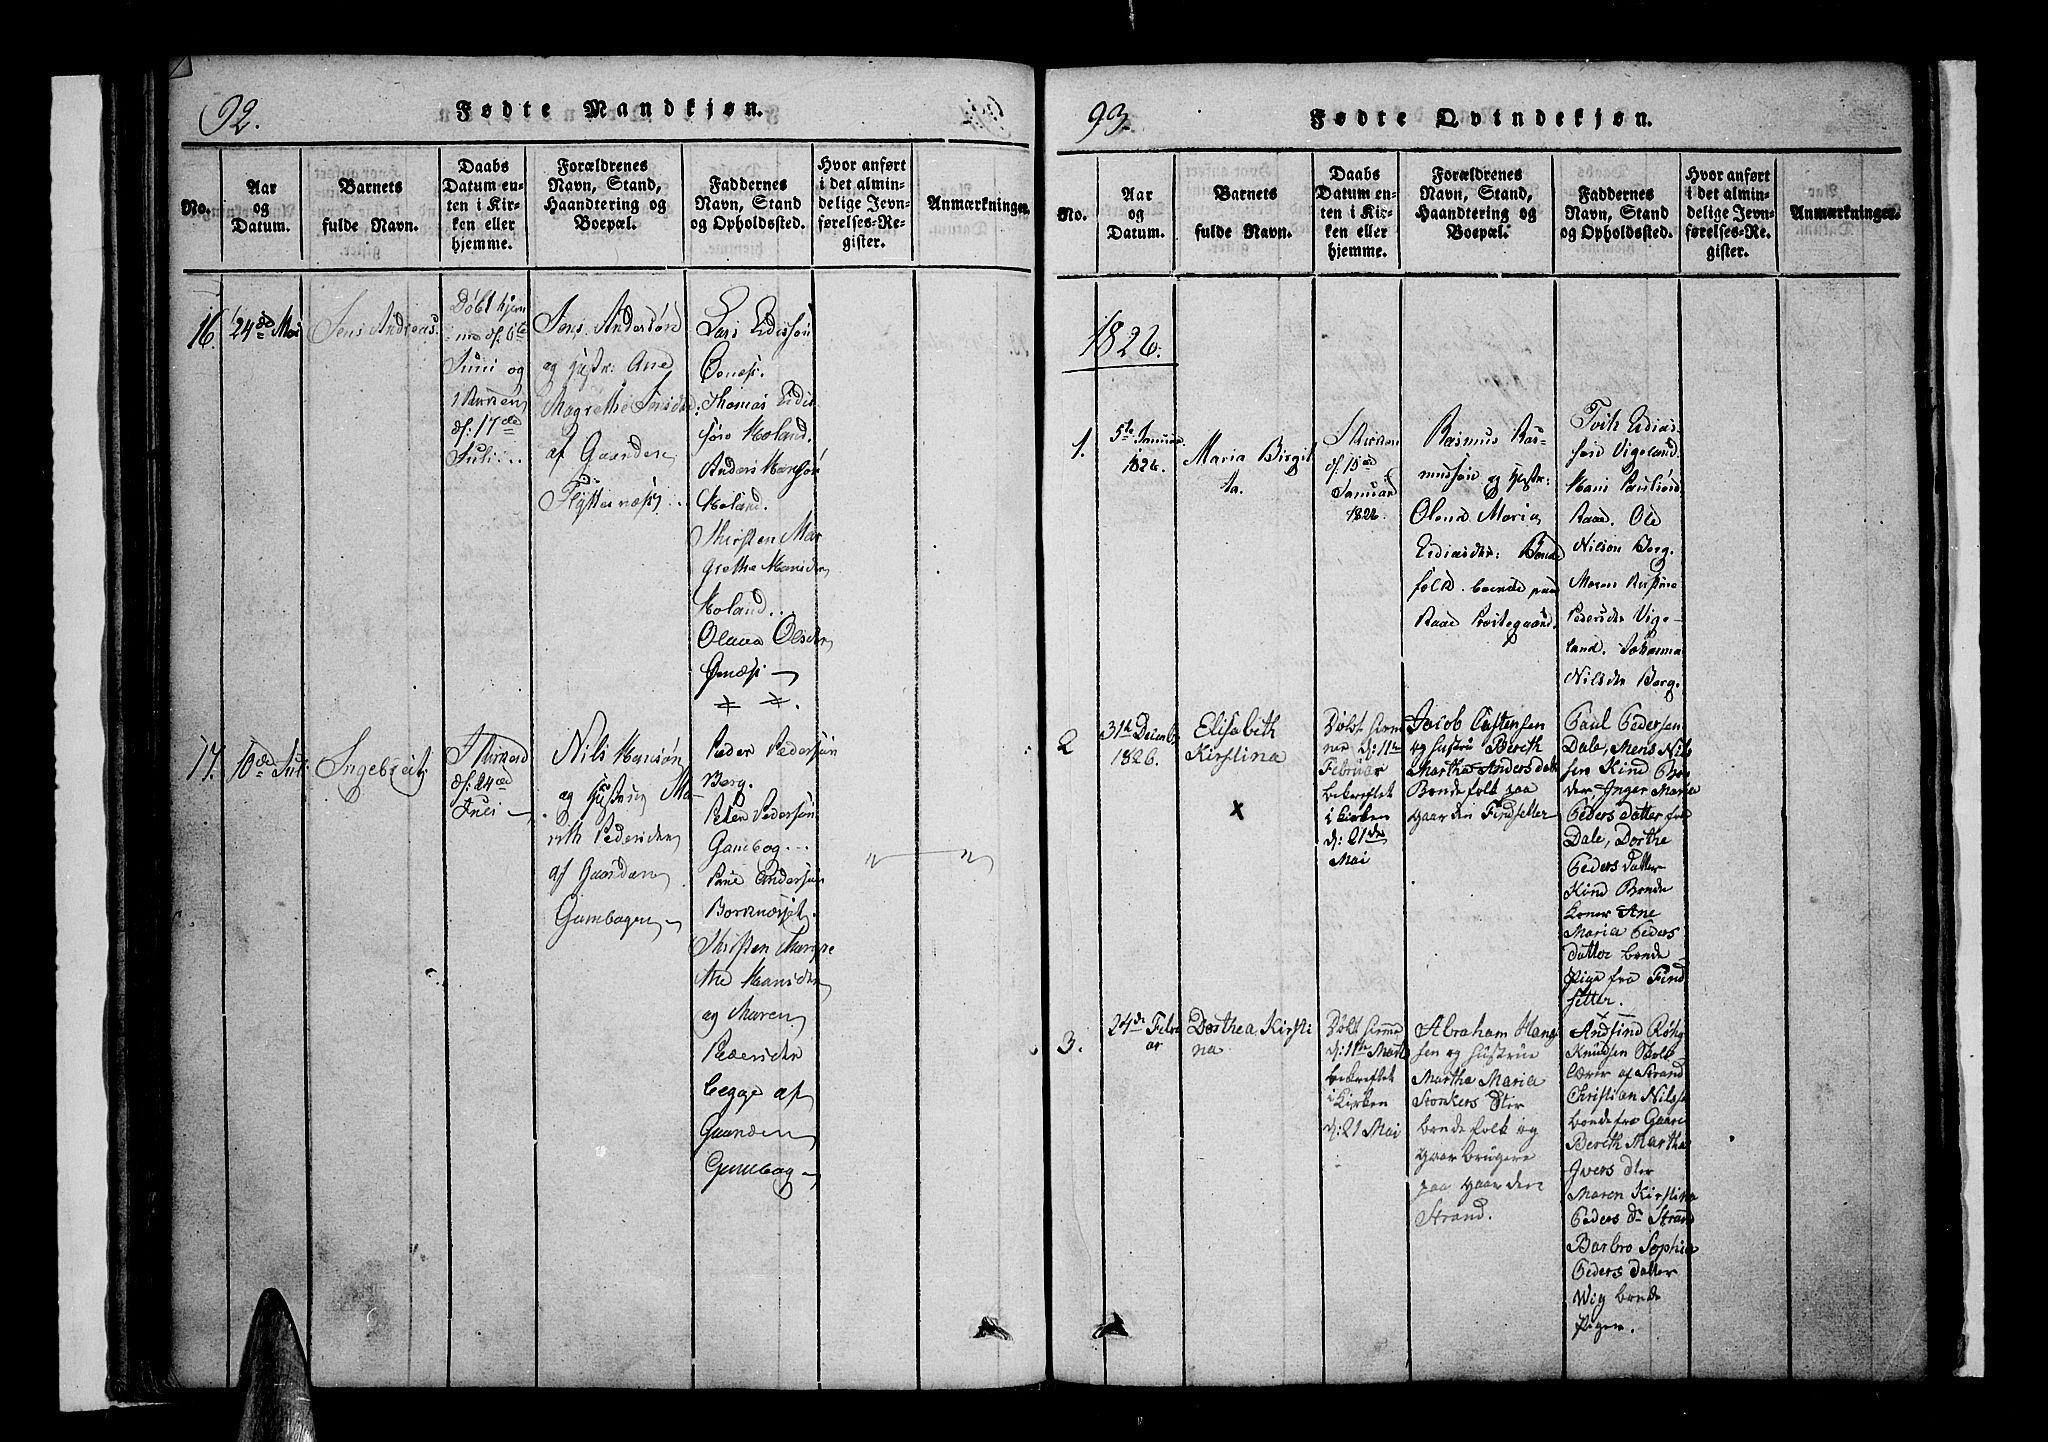 92.
Fødte Mandkjøn.
No.
Aar
og
Datum.
Barnets
fulde Navn.
Daabs
Datum en-
ten i Kir-
ken eller
hjemme.
Forældrenes
Navn, Stand,
Haandtering og
Boepæl.
Faddernes
Navn, Stand
og Opholdssted.
Hvor anført
i det almin-
delige Jevn-
førelses-Re-
gister.
Anmærkninger.
16.
24de Mai
Jens Andreas.
Døbt hjem
me d: 6te
Juni og
i Kirken
d: 17de
Juli
Jens Andersøn
og Hustr: Ane
Magrethe Jensdr
af Gaarden
Flyttenæss
Lars
Thomas
søn Moland.
Anders Hansøn
Moland.
Kirsten Mar
grethe Hansdtr
Moland
Olava Olsdtr
17.
10de Juli
Ingebreit
I Kirken
d: 24de
Juli
Nils Hansøn
og Hustrue Ma-
rith Pedersdtr
af Gaarden
Gambogen
Peder Pedersøn
Berg.
Peter Pedersøn
Gambog
Andersøn
Kirsten Margre
the Hansdtr
og Maren
Pedersdtr
begge af
Gaarden
Gambog
93.
Fødte Qvindekjøn.
No.
Aar
og
Datum.
Barnets
fulde Navn.
Daabs
Datum en-
ten i Kir-
ken eller
hjemme.
Forældrenes
Navn, Stand,
Haandtering og
Boepæl.
Faddernes
Navn, Stand
og Opholdssted.
Hvor anført
i det almin-
delige Jevn-
førelses-Re-
gister.
Anmærkninger.
1826.
1.
5te Januar
1826.
Maria Birgit
ta.
I Kirken
d: 15de
Januar
1826.
Rasmus Ras-
musen og Hustr:
Olena Maria
Erdiasdtr: Bonde
folk boende paa
Raae Præstegaard.
Tvith Erdias
sen Vigeland.
Hans Paulsøn
Raae. Ole
Nilsøn Berg.
Maren Kirstine
Pedersdtr Vige-
land. Johanna
Nilsdtr Berg.
2
31te Decembr
1826.
Elisabeth
Kirstina
x
Døbt hiem
me d: 11te
Februar
bekreftet
i Kirken
d: 21de
Mai
Jacob Castensen
og Hustrue Bereth
Martha Anders datter
Bondefolk paa
gaarden Findsetter
Paul Pedersen
Dale, Mens Nil
sen Kind Bøn
der, Inger Maria
Peders datter fra
Dale, Dorthe
Peders datter
Kind Bonde
koner Ane
Maria Peders
datter bonde
pige fra Find
setter.
3.
24de Febru
ar
Dorthea Kirsti
na
Døbt hieme
d: 11te Marts
bekreftet
i Kirken
d: 21 Mai
Abraham Hans
sen og Hustrue
Martha Maria
Stonkers dtter
bonde folk og
gaar brugere
paa gaarden
Strand.
Andfind Røhg
Knudsen Skol
lærer af Strand
Christian Nilsen
bonde fra Gaare
Bereth Martha
Ivers dter
Maren Kirstina
Peders dr Strand
Barbro Sophia
Peders datter
Wig bonde
piger.